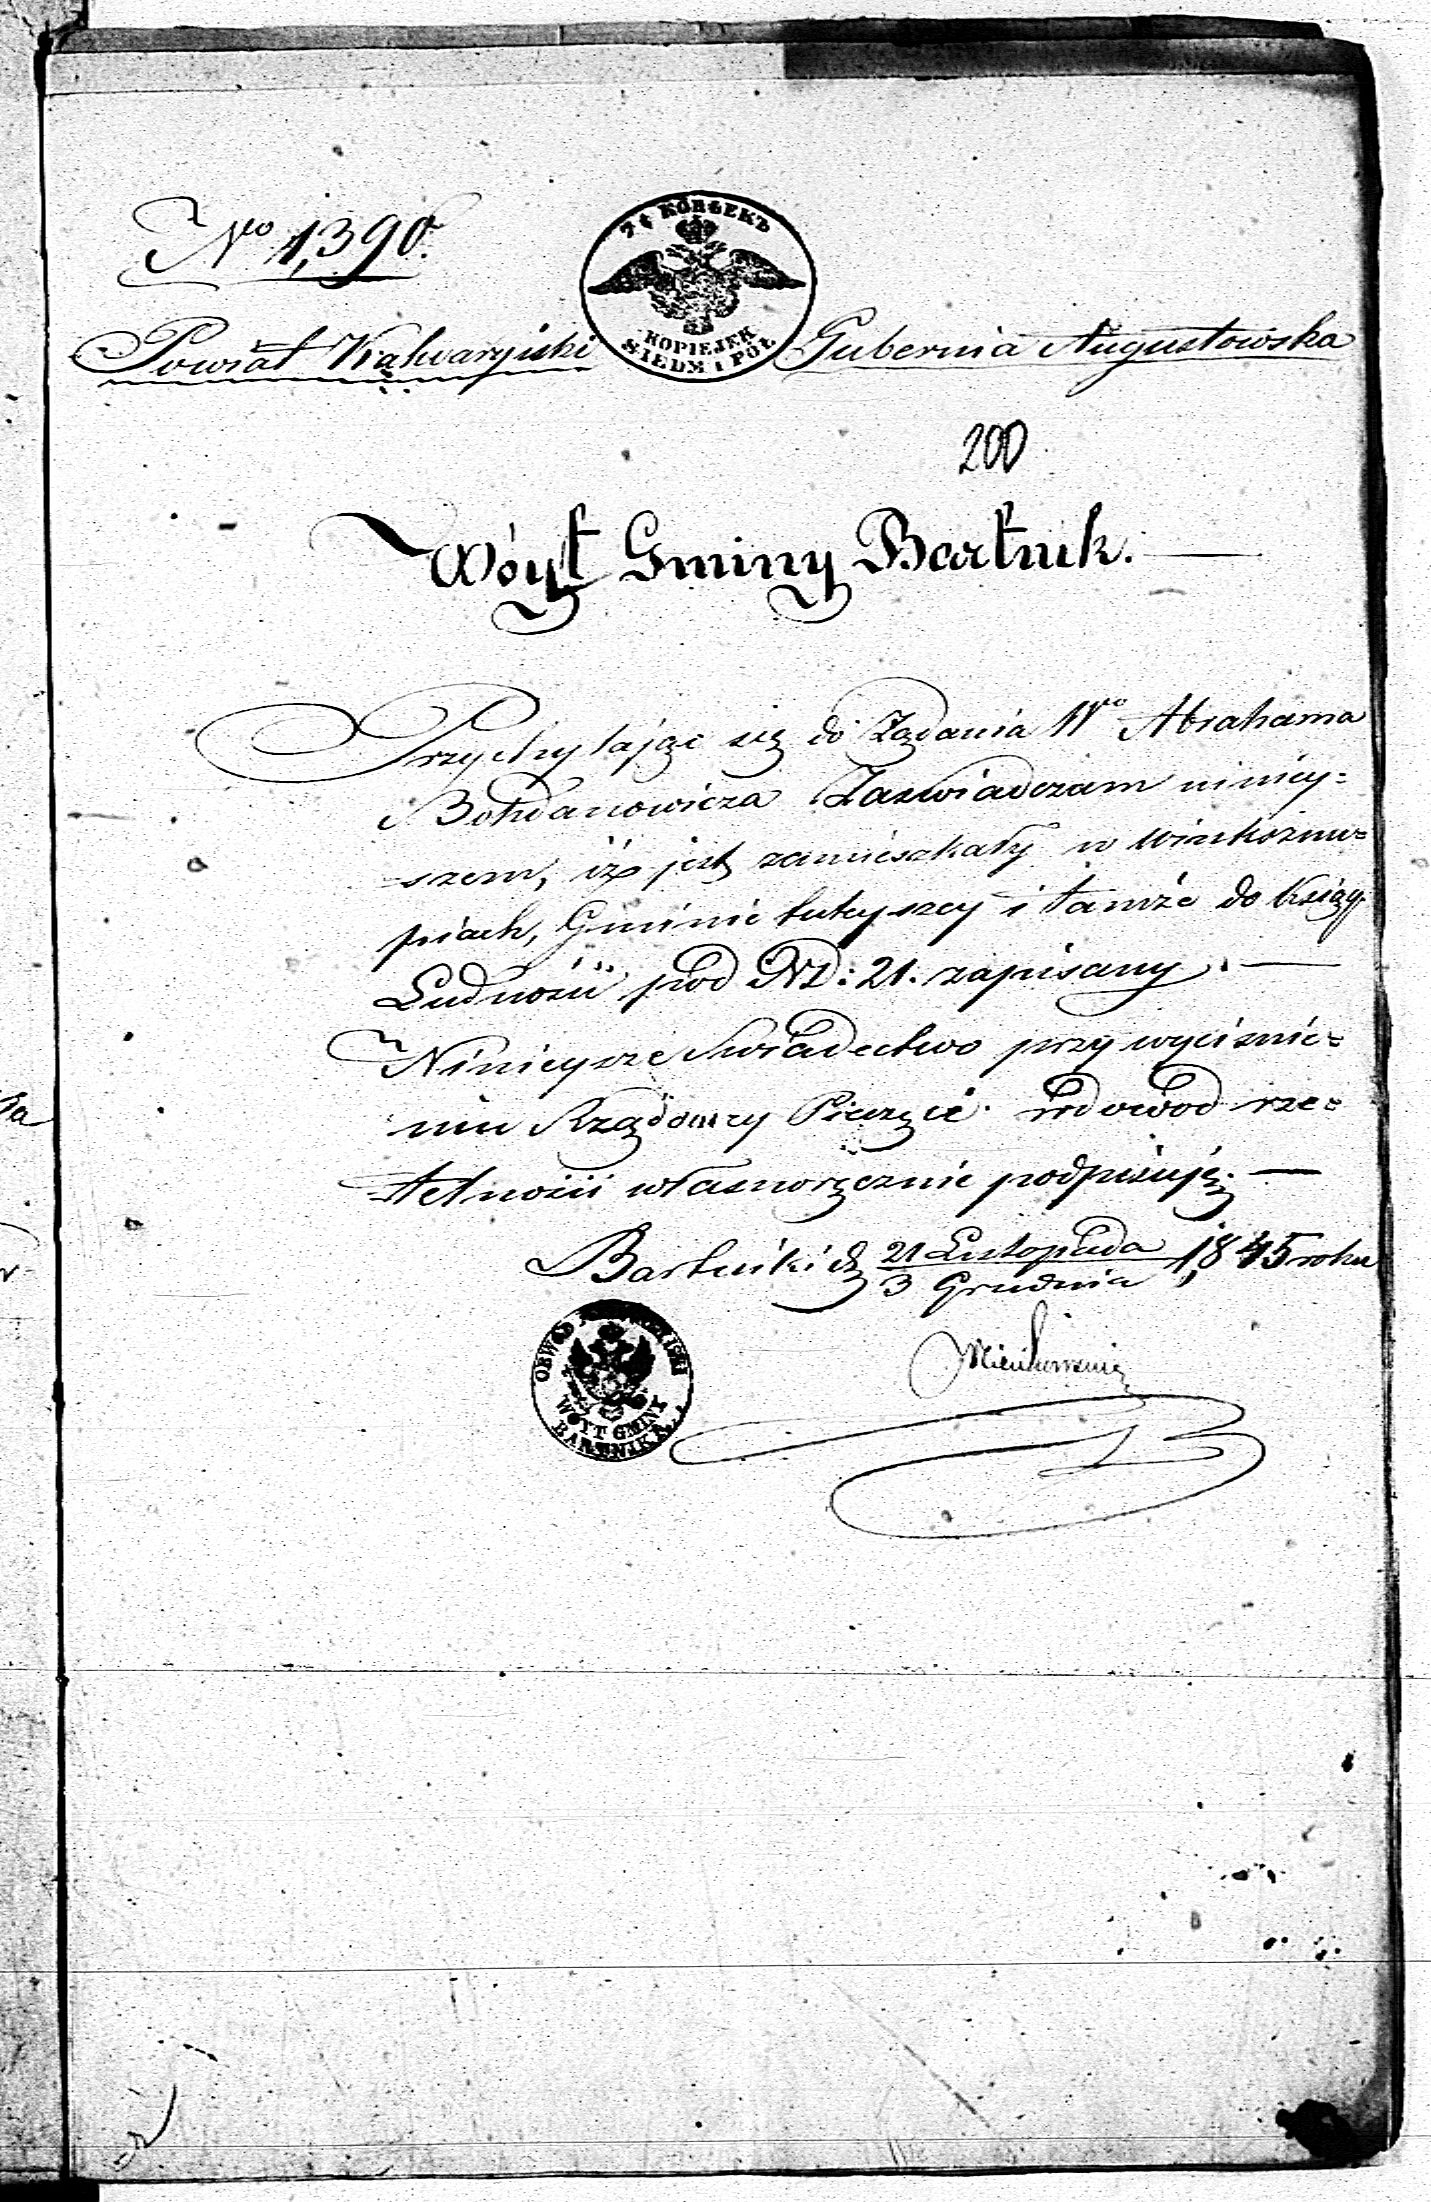 No 1,390.
7½ KOPѢEKЪ
KOPIEJEK
SIEDM I PÓŁ
Powiat Kalwaryiski Gubernia Augustowska
200
Wóyt Gminy Bartnik.
Przychylając się do Żądania Wo Abrahama
Bohdanowicza Zaświadczam niniey=
szem, iż jest zamieszkały w
piach, Gminie tuteyszey i tamże do Xsiąg
Ludności pod ND: 21. zapisany. —
Ninieysze Swiadectwo przy wyciśnie=
niu Rządowey Pieczęci na dowód rze=
telności własnoręcznie podpisuję. —
Bartniki d 21 Listopada / 3 Grudnia 1,845 roku
OBWÓD KALWARYISKI
WOYT GMINY
BARTNIKI